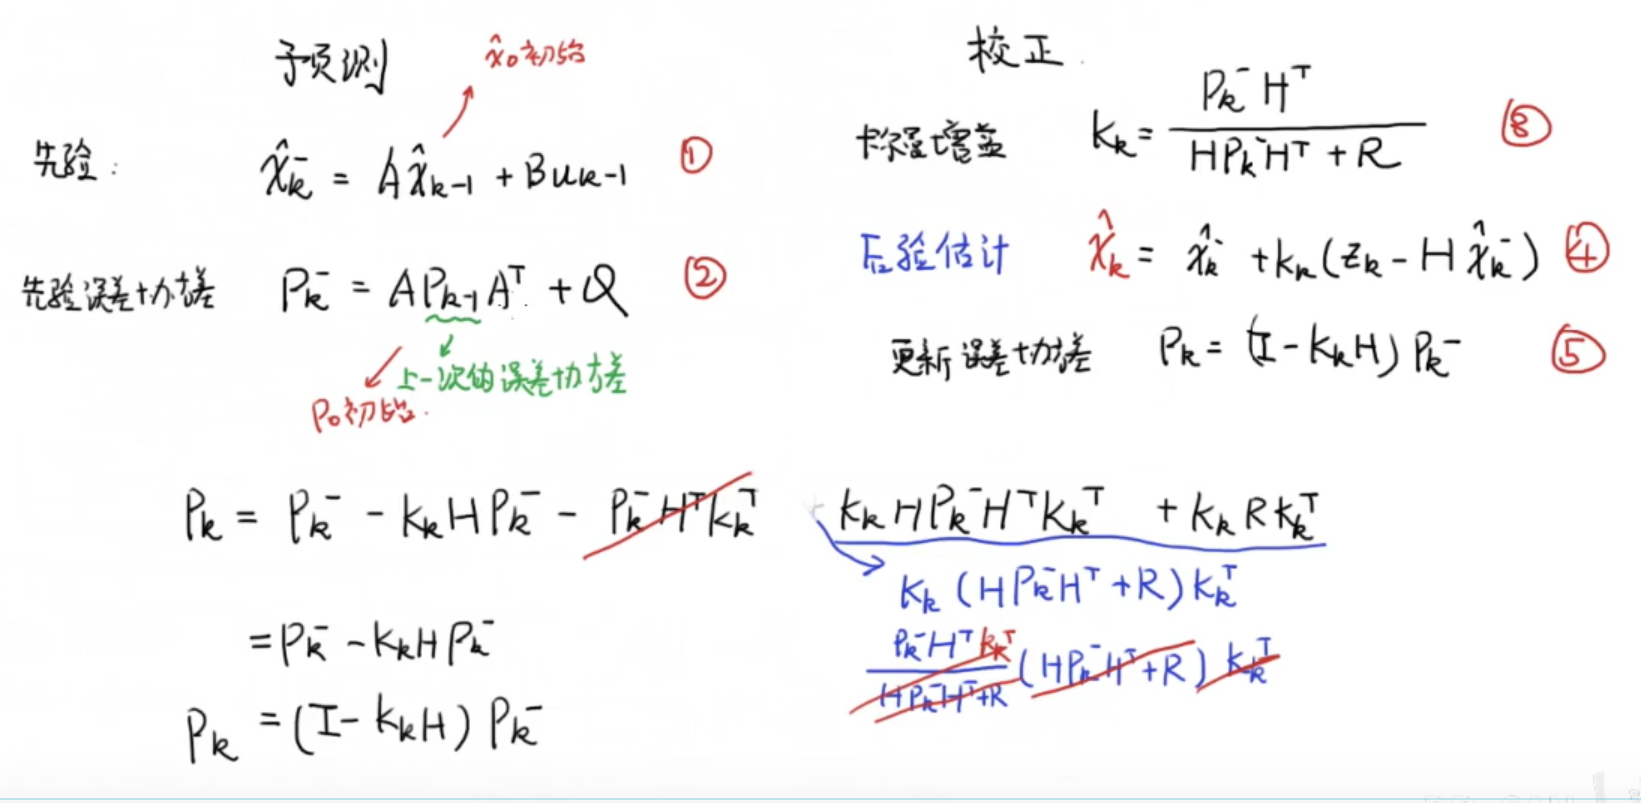 预测
x̂₀初始
先验:
x̂ₖ⁻ = Ax̂ₖ₋₁ + Buₖ₋₁ ①
先验误差协方差
Pₖ⁻ = APₖ₋₁Aᵀ + Q ②
上一次的误差协方差
P₀初始.
校正
卡尔曼增益
Kₖ = Pₖ⁻Hᵀ / HPₖ⁻Hᵀ + R ③
后验估计
x̂ₖ = x̂ₖ⁻ + Kₖ(zₖ - Hx̂ₖ⁻) ④
更新误差协方差
Pₖ = (I - KₖH)Pₖ⁻ ⑤
Pₖ = Pₖ⁻ - KₖHPₖ⁻ - Pₖ⁻HᵀKₖᵀ + KₖHPₖ⁻HᵀKₖᵀ + KₖRKₖᵀ
Kₖ(HPₖ⁻Hᵀ + R)Kₖᵀ
Pₖ⁻HᵀKₖᵀ / HPₖ⁻Hᵀ+R (HPₖ⁻Hᵀ+R) Kₖᵀ
= Pₖ⁻ - KₖHPₖ⁻
Pₖ = (I - KₖH)Pₖ⁻